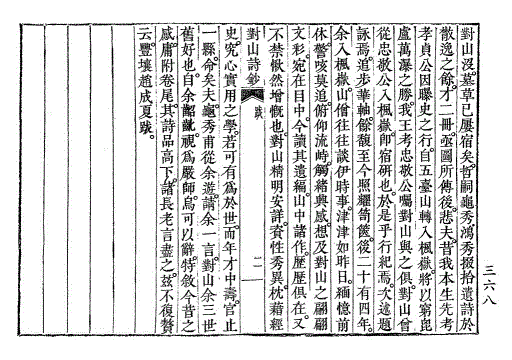 三六八
對山沒。墓草已屢宿矣。哲嗣龜秀鴻秀掇拾遺詩於
散逸之餘。才二冊。亟圖所傳後。悲夫。昔我本生先考
孝貞公因曝史之行。自五臺山轉入楓嶽。將以窮毘
盧萬瀑之勝。我王考忠敬公囑對山與之俱。對山曾
從忠敬公入楓嶽。師宿硏也。於是乎行紀焉。次述題
詠焉。追步華軸。餘馥至今照耀筒篋。後二十有四年。
余入楓嶽。山僧往往談伊時事。津津如昨日。緬憶前
休。謦咳莫追。俯仰流峙。觸緖興感。想及對山之翩翩
文彩宛在目中。今讀其遺編。山中諸作。歷歷俱在。又
不禁愀然增慨也。對山精明安詳。資性秀異。枕藉經
對山詩鈔 跋 二
史。究心實用之學。若可有爲於世。而年才中壽。官止
一縣。命矣夫。龜秀甫從余遊。請余一言。對山余三世
舊好也。自余髫齔。視爲嚴師。烏可以辭。特敘今昔之
感。庸附卷尾。其詩品高下。諸長老言盡之。玆不復贅
云。豐壤趙成夏跋。